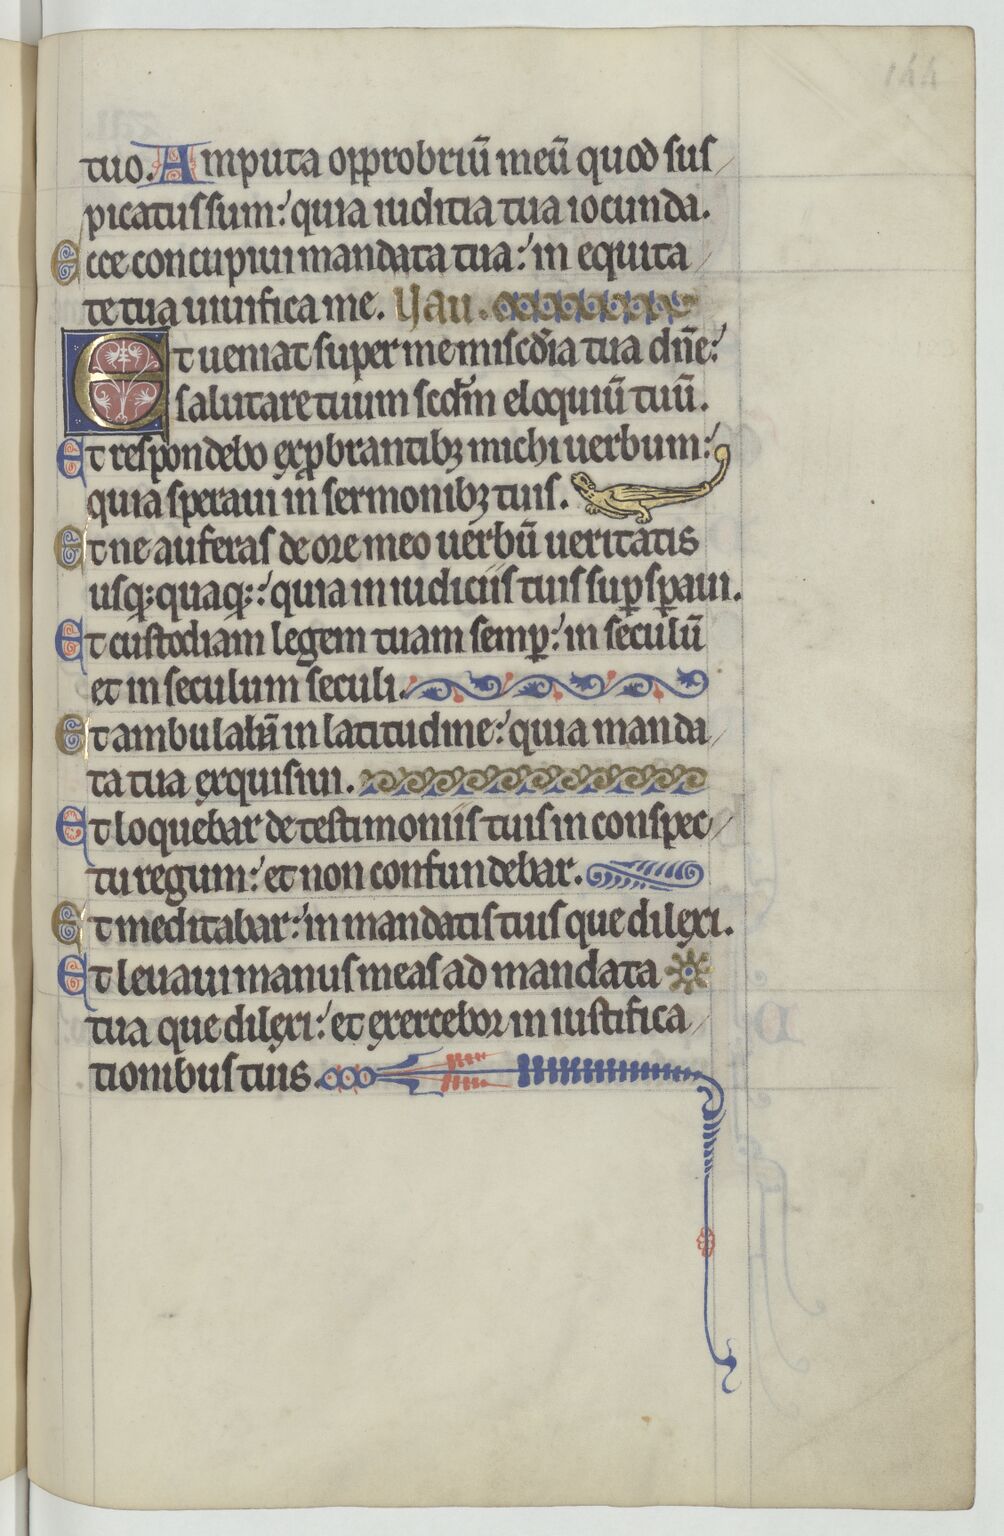 144
tuo. Amputa opprobriū meū quod sus
picatus sum: quia iudicia tua iocunda.
Ecce concupiui mandata tua: in equita
te tua uiuifica me. Uau.
Et ueniat super me misc̄dia tua dn̄e:
salutare tuum scd̄m eloquiū tuū.
Et respondebo exꝓbrantibꝫ michi uerbum:
quia speraui in sermonibꝫ tuis.
Et ne auferas de ore meo uerbū ueritatis
usqꝫ quaqꝫ: quia in iudiciis tuis suꝑsꝑaui.
Et custodiam legem tuam semꝑ: in seculū
et in seculum seculi.
Et ambulabā in latitudine: quia manda
ta tua exquisiui.
Et loquebar de testimoniis tuis in conspec
tu regum: et non confundebar.
Et meditabar: in mandatis tuis que dilexi.
Et leuaui manus meas ad mandata
tua que dilexi: et exercebor in iustifica
tionibus tuis.